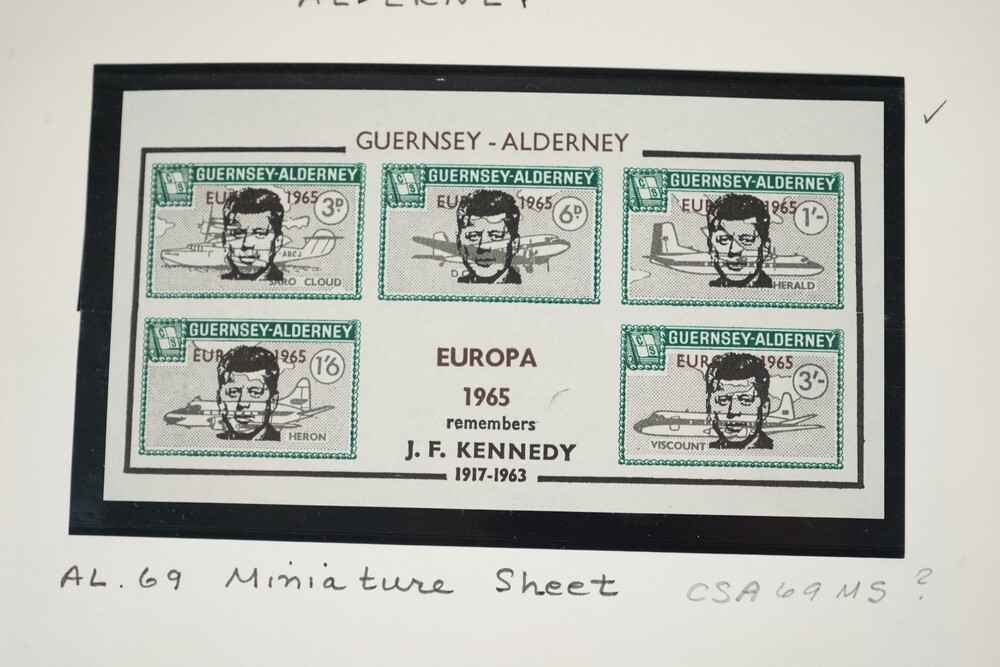 ALDERNEY
GUERNSEY - ALDERNEY
C S GUERNSEY-ALDERNEY
1965 3D
ABCJ
SARO CLOUD
C S GUERNSEY-ALDERNEY
1965 6D
D
C S GUERNSEY-ALDERNEY
1965 1'-
HERALD
C S GUERNSEY-ALDERNEY
1965 1'6
HERON
EUROPA
1965
remembers
J. F. KENNEDY
1917-1963
C S GUERNSEY-ALDERNEY
1965 3'-
VISCOUNT
AL. 69 Miniature Sheet CSA 69 MS ?